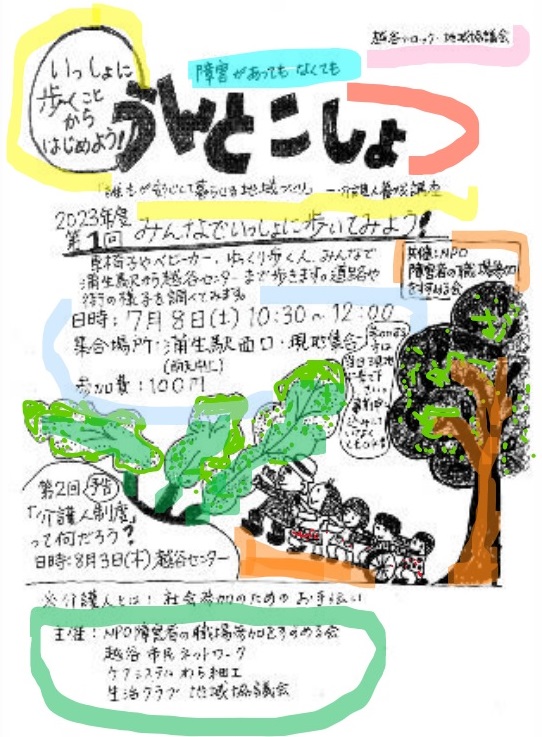 越谷ブロック地域協議会
いっしょに
歩くこと
から
はじめよう!
障害があってもなくても
うんとこしょ
「誰もが安心して暮らせる地域づくり」 ー介護人養成講座
2023年度
第1回 みんなでいっしょに歩いてみよう!
車椅子やベビーカー、ゆっくり歩く人、みんなで
蒲生駅から越谷センターまで歩きます。道路や
街の様子を調べてみます。
共催:NPO
障害者の職場参加
をすすめる会
日時:7月8日(土)10:30~12:00
集合場所・蒲生駅西口・現地集合
(雨天中止)
参加費:100円
第2回 予告
「介護人制度」
って何だろう?
日時:8月3日(木)越谷センター
※介護人とは:社会参加のためのお手伝い
主催:NPO障害者の職場参加をすすめる会
越谷市民ネットワーク
ケアシステムわら細工
生活クラブ 地域協議会